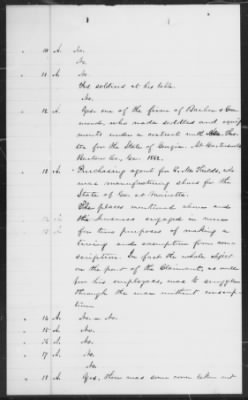 " 10 A. No.
No
" 11 A. No.
No soldiers at his table.
No.
" 12 A. Yes one of the firm of Barber &
who made saddles and equip
ments under a contract with the
for the State of Georgia. At Cartersville
Bartow Co, Geo. 1862.
" 13 A. Purchasing agent for
was manufacturing shoes for the
State of Geo. at Marietta.
The places mentioned above and
the business engaged in
for the purposes of making a
living and exemption from con
scription. In fact the whole object
on the part of the Claimant, as well
for his employees, was to struggle
through the war without conscrip
tion.
" 14 A. No.
" 15 A. No.
" 16 A. No.
" 17 A. No.
No
" 18 A. Yes, there was some corn taken out